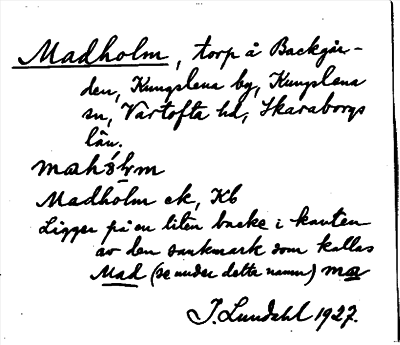 Madholm, torp å Backgår-
den, Kungslena by, Kungslena
sn, Vartofta hd, Skaraborgs
län.
Madholm ek, Kb
Ligger på en liten backe i kanten
av den sankmark som kallas
Mad (se under detta namn) ma
J. Lundahl 1927.